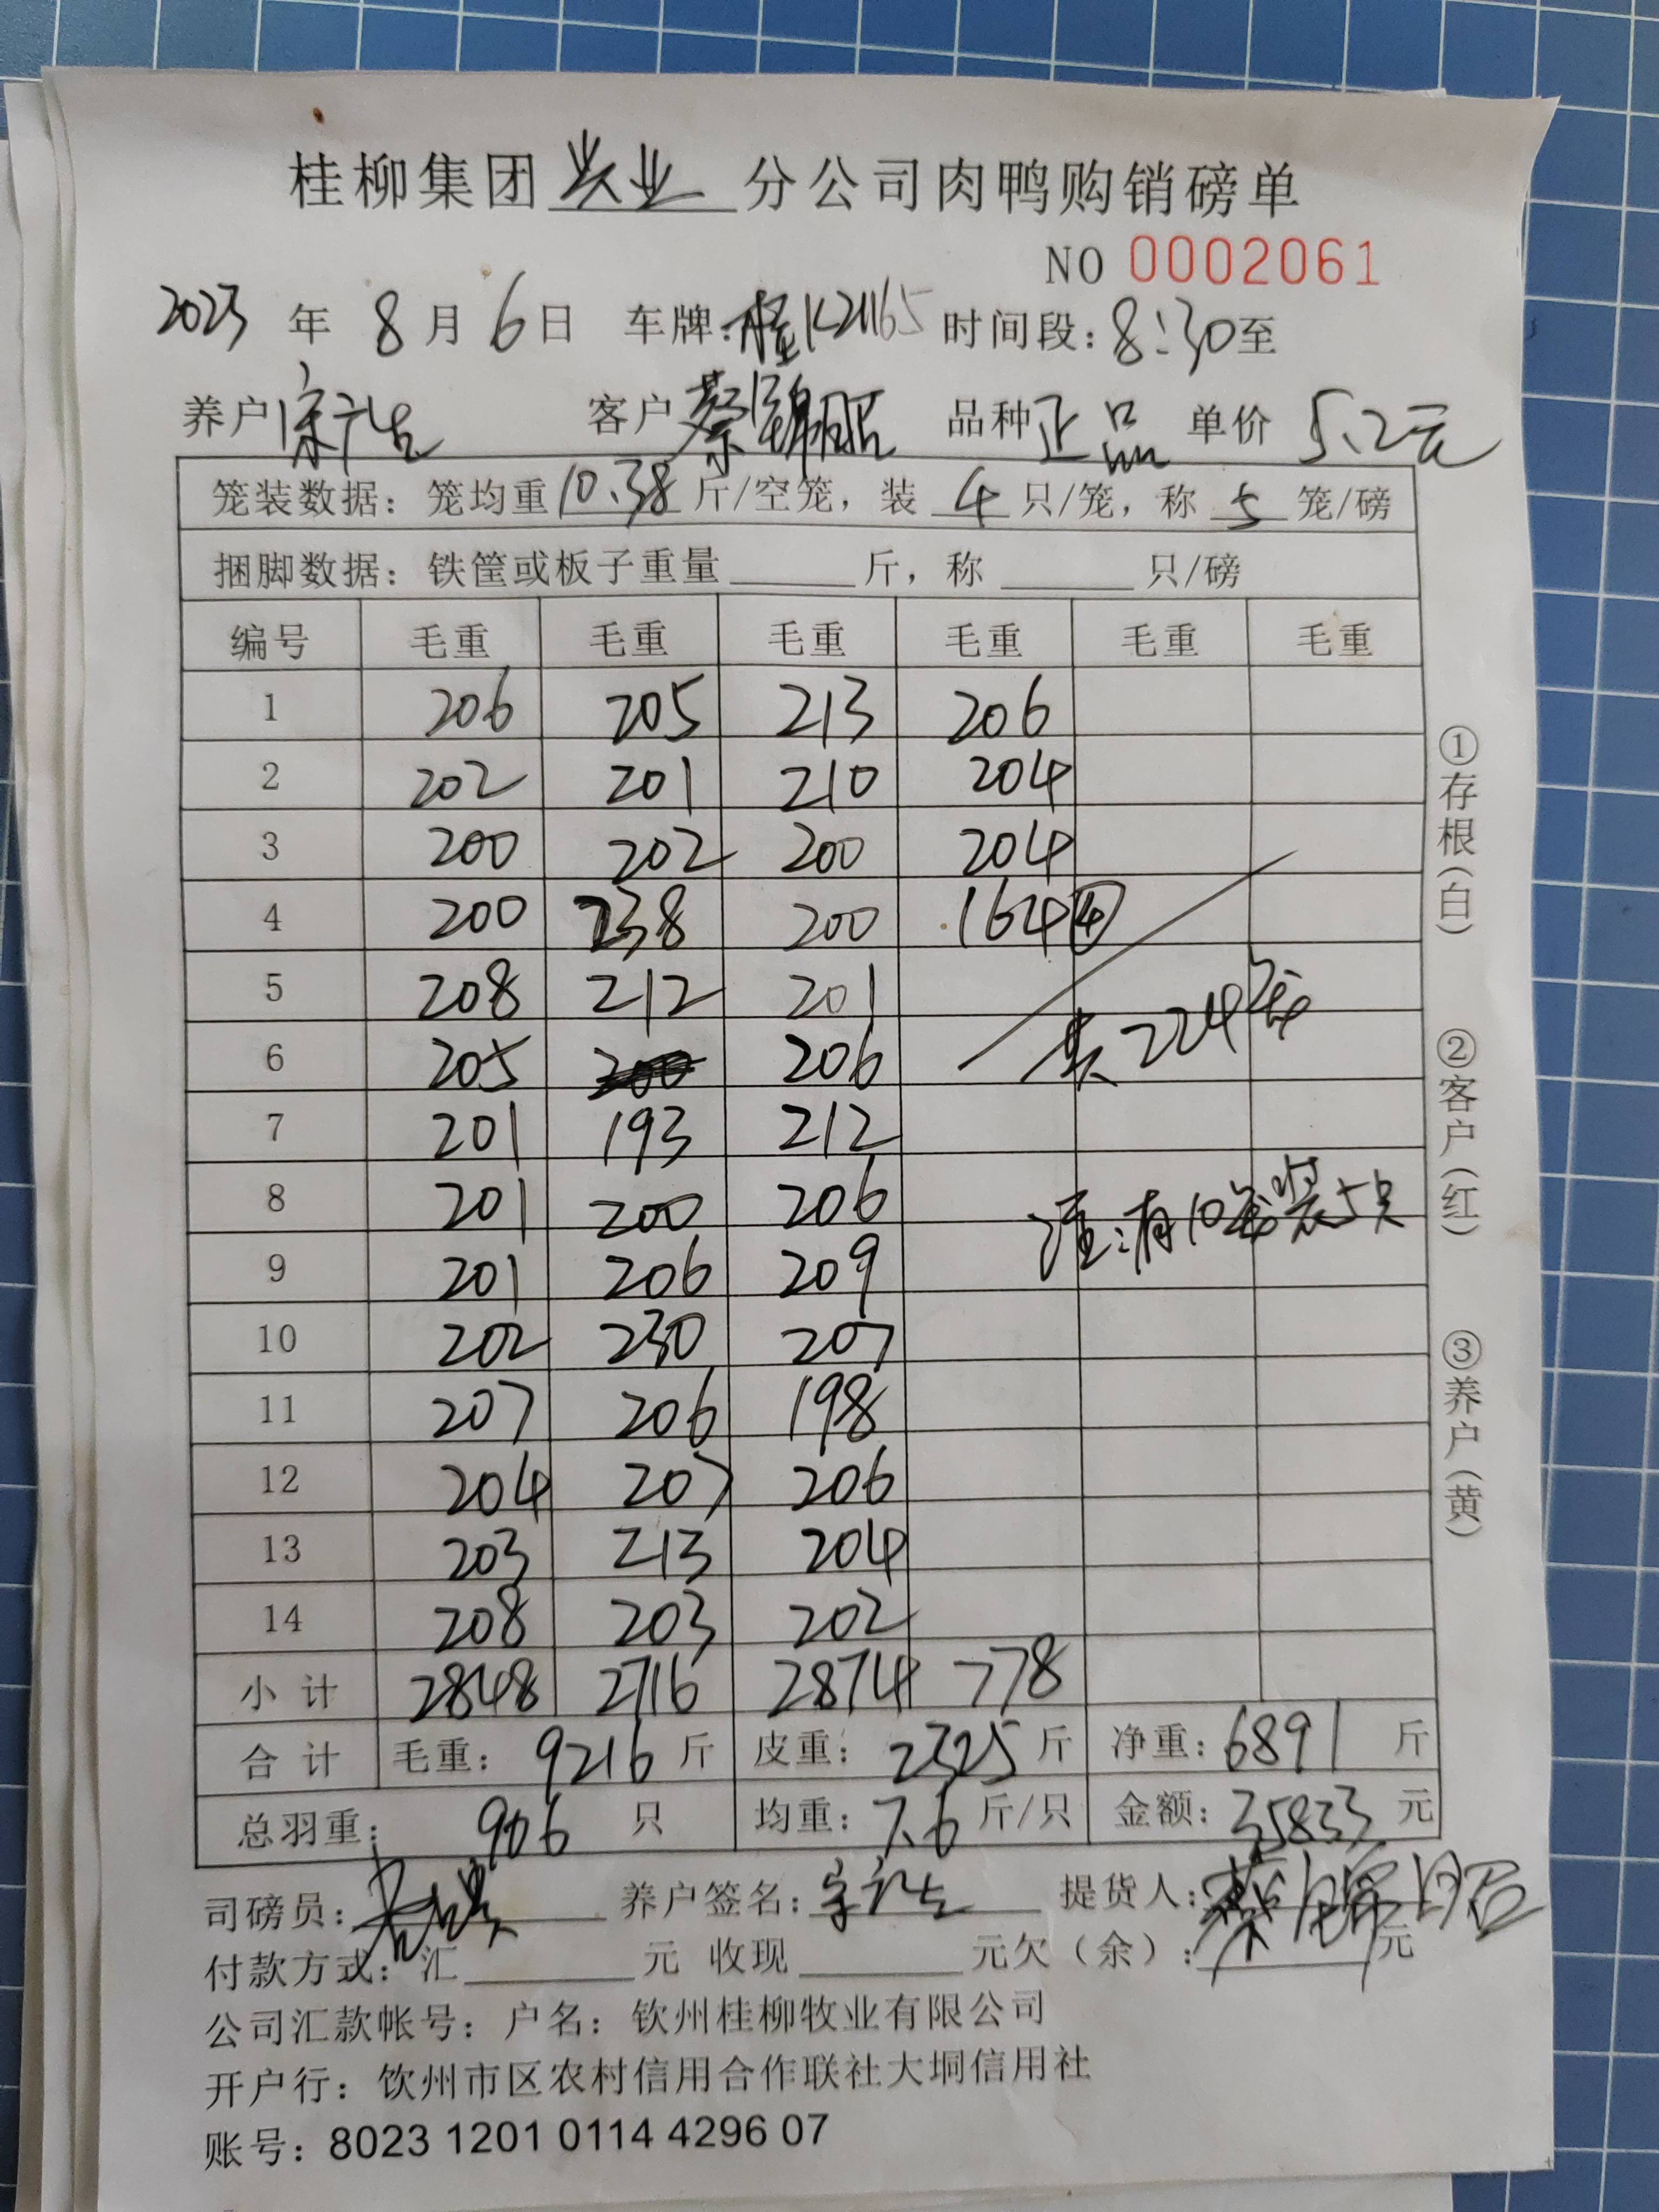 桂柳集团兴业分公司肉鸭购销磅单
NO 0002061
2023年8月6日 车牌:桂K21165 时间段:8:30至
养户 客户蔡锦昭 品种正品 单价5.2元
笼装数据：笼均重10.38斤/空笼，装4只/笼，称5笼/磅
捆脚数据：铁筐或板子重量______斤，称______只/磅
编号 毛重 毛重 毛重 毛重 毛重 毛重
1 206 205 213 206
2 202 201 210 204
3 200 202 200 204
4 200 238 200 164④
5 208 212 201
共224笼
6 205 206
7 201 193 212
8 201 200 206
注:有10笼装5只
9 201 206 209
10 202 230 207
11 207 206 198
12 204 207 206
13 203 213 204
14 208 203 202
小计 2848 2716 2874 778
合计 毛重：9216斤 皮重：2325斤 净重：6891斤
总羽重：906只 均重：7.6斤/只 金额：35833元
司磅员： 养户签名： 提货人：蔡锦昭
付款方式：汇______元 收现______元欠（余）：______元
公司汇款帐号：户名：钦州桂柳牧业有限公司
开户行：钦州市区农村信用合作联社大垌信用社
账号：8023 1201 0114 4296 07
①存根(白)
②客户(红)
③养户(黄)